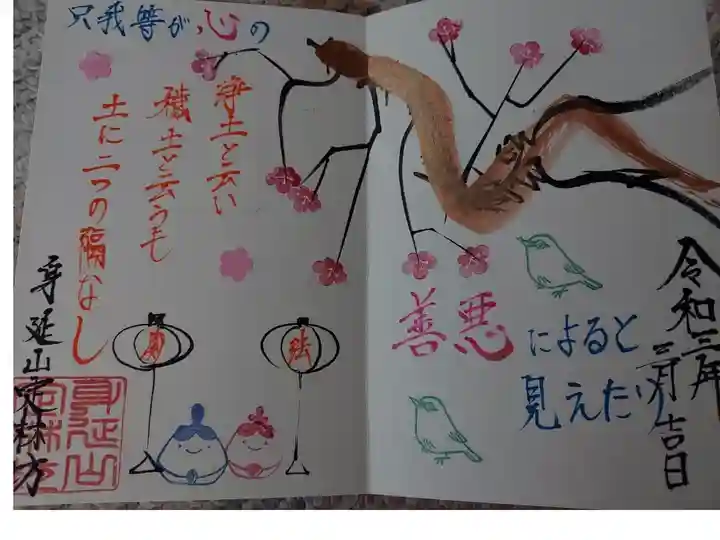 浄土と云い
穢土と云うも
土に二つの隔なし
只我等が心の
善悪
によると
見えたり
令和三年
三月吉日
身延山定林坊
法
身延山
定林坊